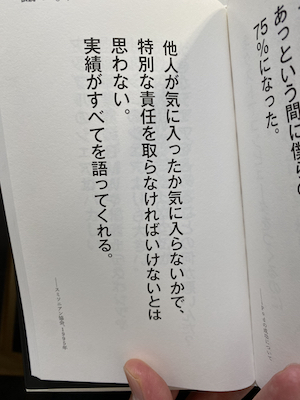 あっという間に僕らの
75%になった。
他人が気に入ったか気に入らないかで、
特別な責任を取らなければいけないとは
思わない。
実績がすべてを語ってくれる。